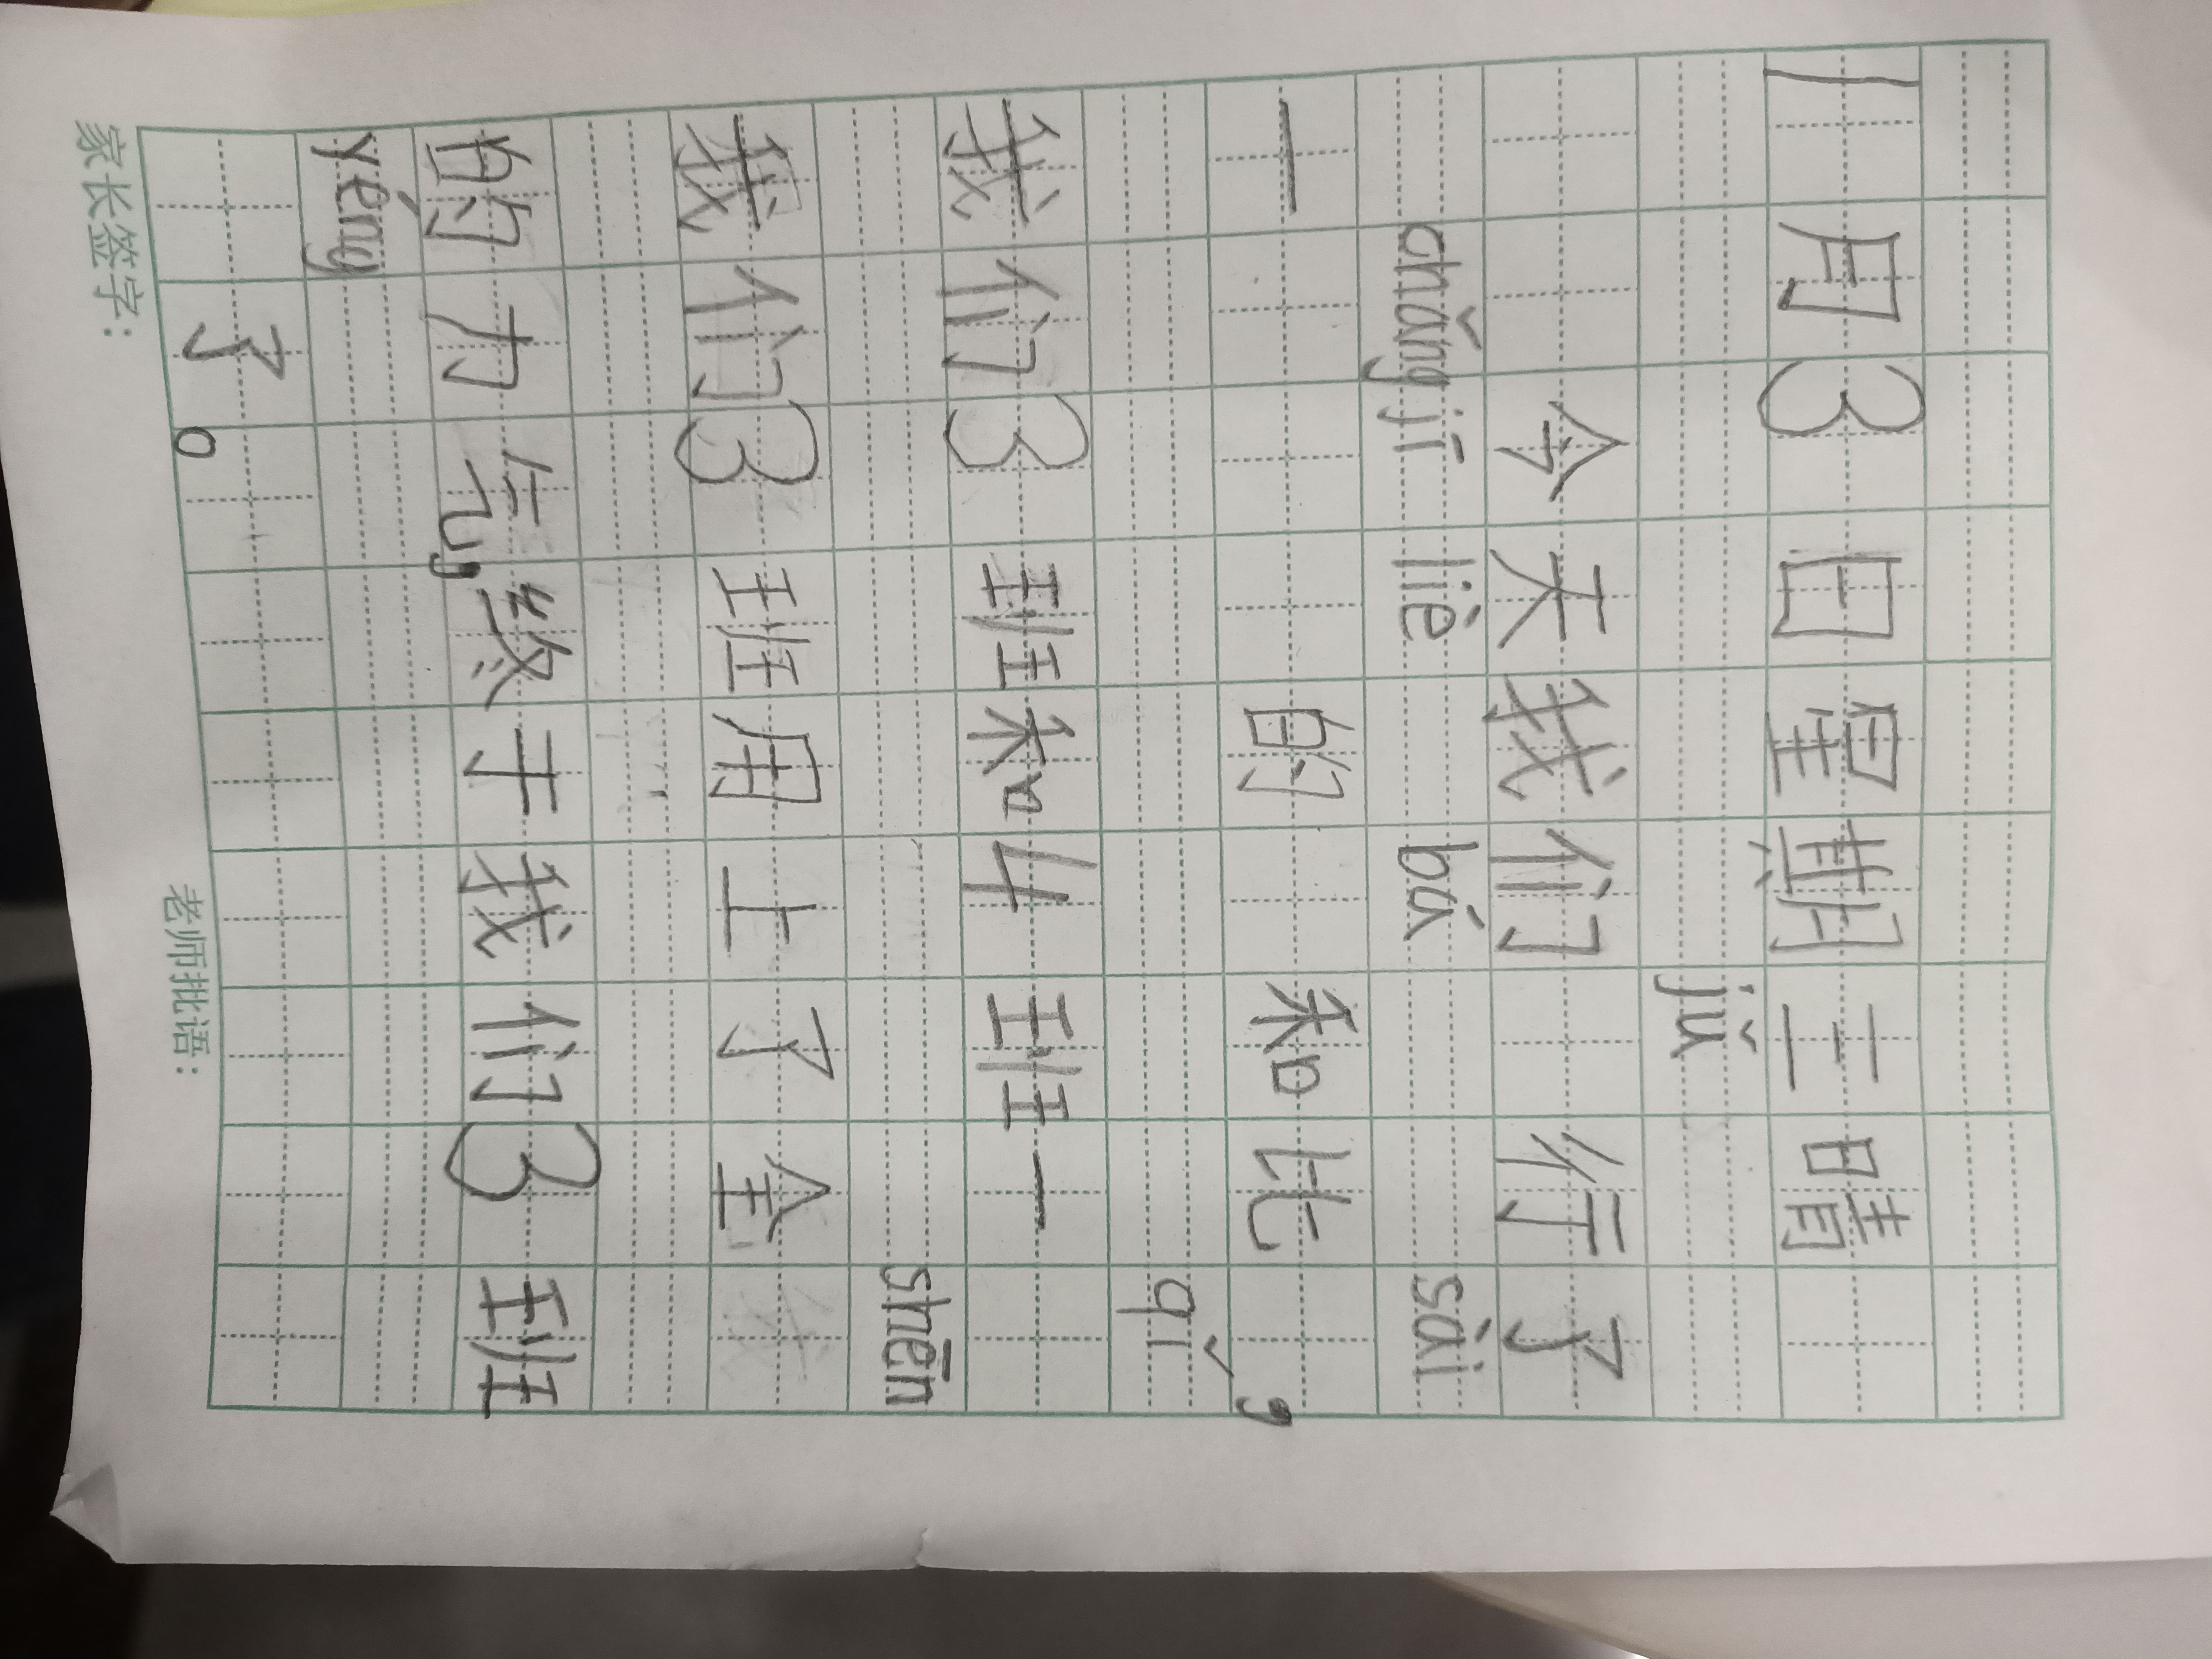 1月3日星期三晴
jǔ
今天我们行了
chǎng jī liè bá sài
一的和比，
qí
我们3班和4班一
shēn
我们3班用上了全
的力气，终于我们3班
yéng
了。
家长签字： 老师批语：